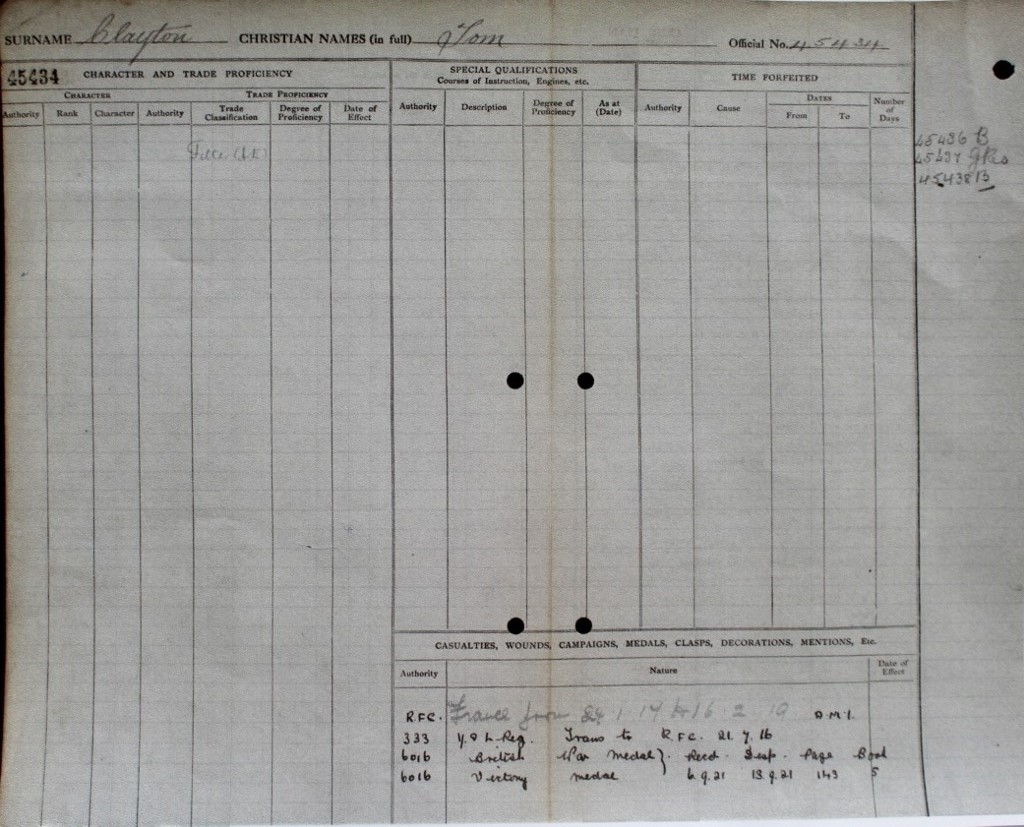 SURNAME Clayton CHRISTIAN NAMES (in full) Tom Official No. 45434
45434 CHARACTER AND TRADE PROFICIENCY
CHARACTER TRADE PROFICIENCY
Authority Rank Character Authority Trade Classification Degree of Proficiency Date of Effect
SPECIAL QUALIFICATIONS
Courses of Instruction, Engines, etc.
Authority Description Degree of Proficiency As at (Date)
TIME FORFEITED
Authority Cause DATES Number of Days
From To
45436 B
45437
45438 B
CASUALTIES, WOUNDS, CAMPAIGNS, MEDALS, CLASPS, DECORATIONS, MENTIONS, Etc.
Authority Nature Date of Effect
R.F.C. France from 1 17 to 16 2 19
333 Y. & L. Reg. Trans to R.F.C. 21 7 16
6016 British War Medal } Recd. Desp. Page Book
6016 Victory medal 6.9.21 13.9.21 143 5